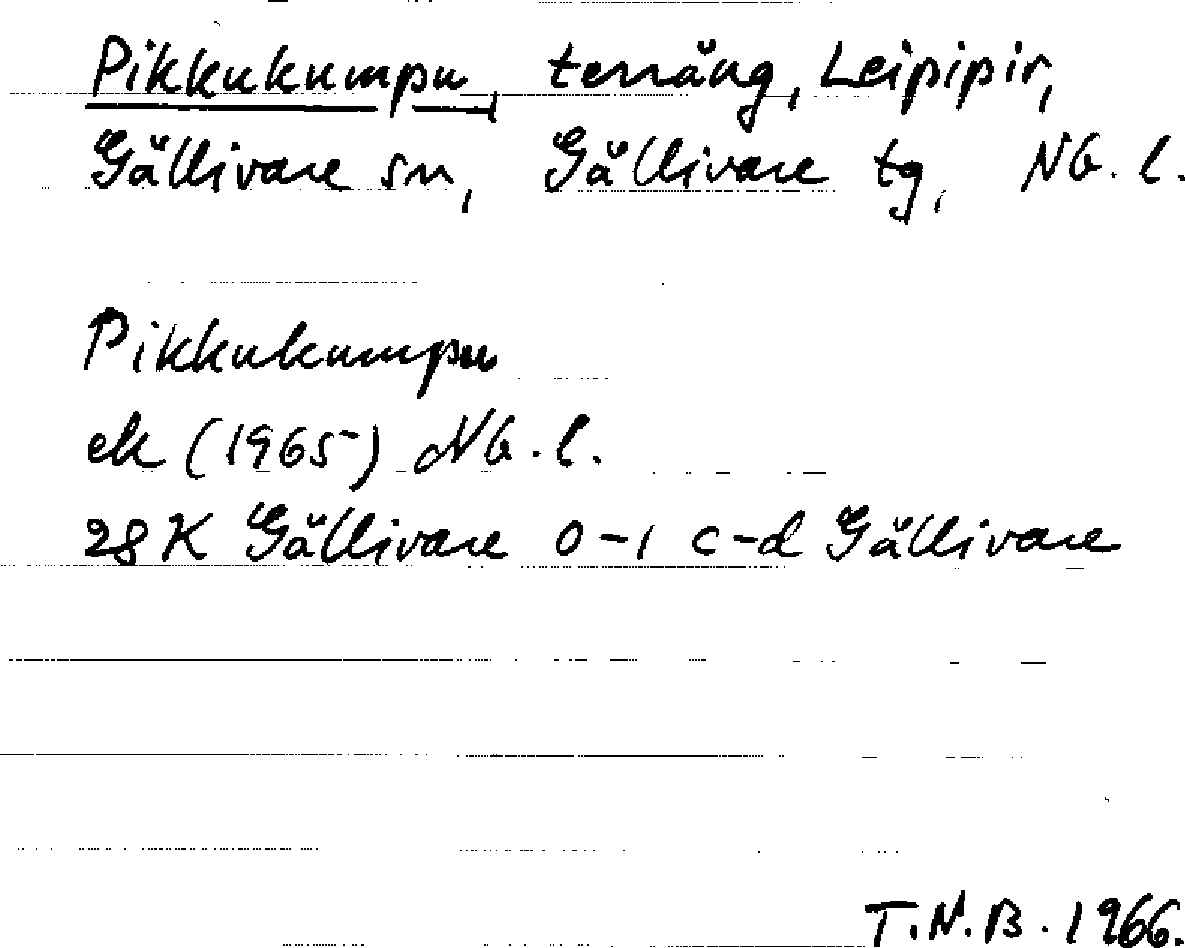 Pikkukumpu, terräng, Leipipir,
Gällivare sn, Gällivare tg, Nb. l.
Pikkukumpu
ek (1965) Nb. l.
28 K Gällivare 0-1 c-d Gällivare
T.N.B. 1966.